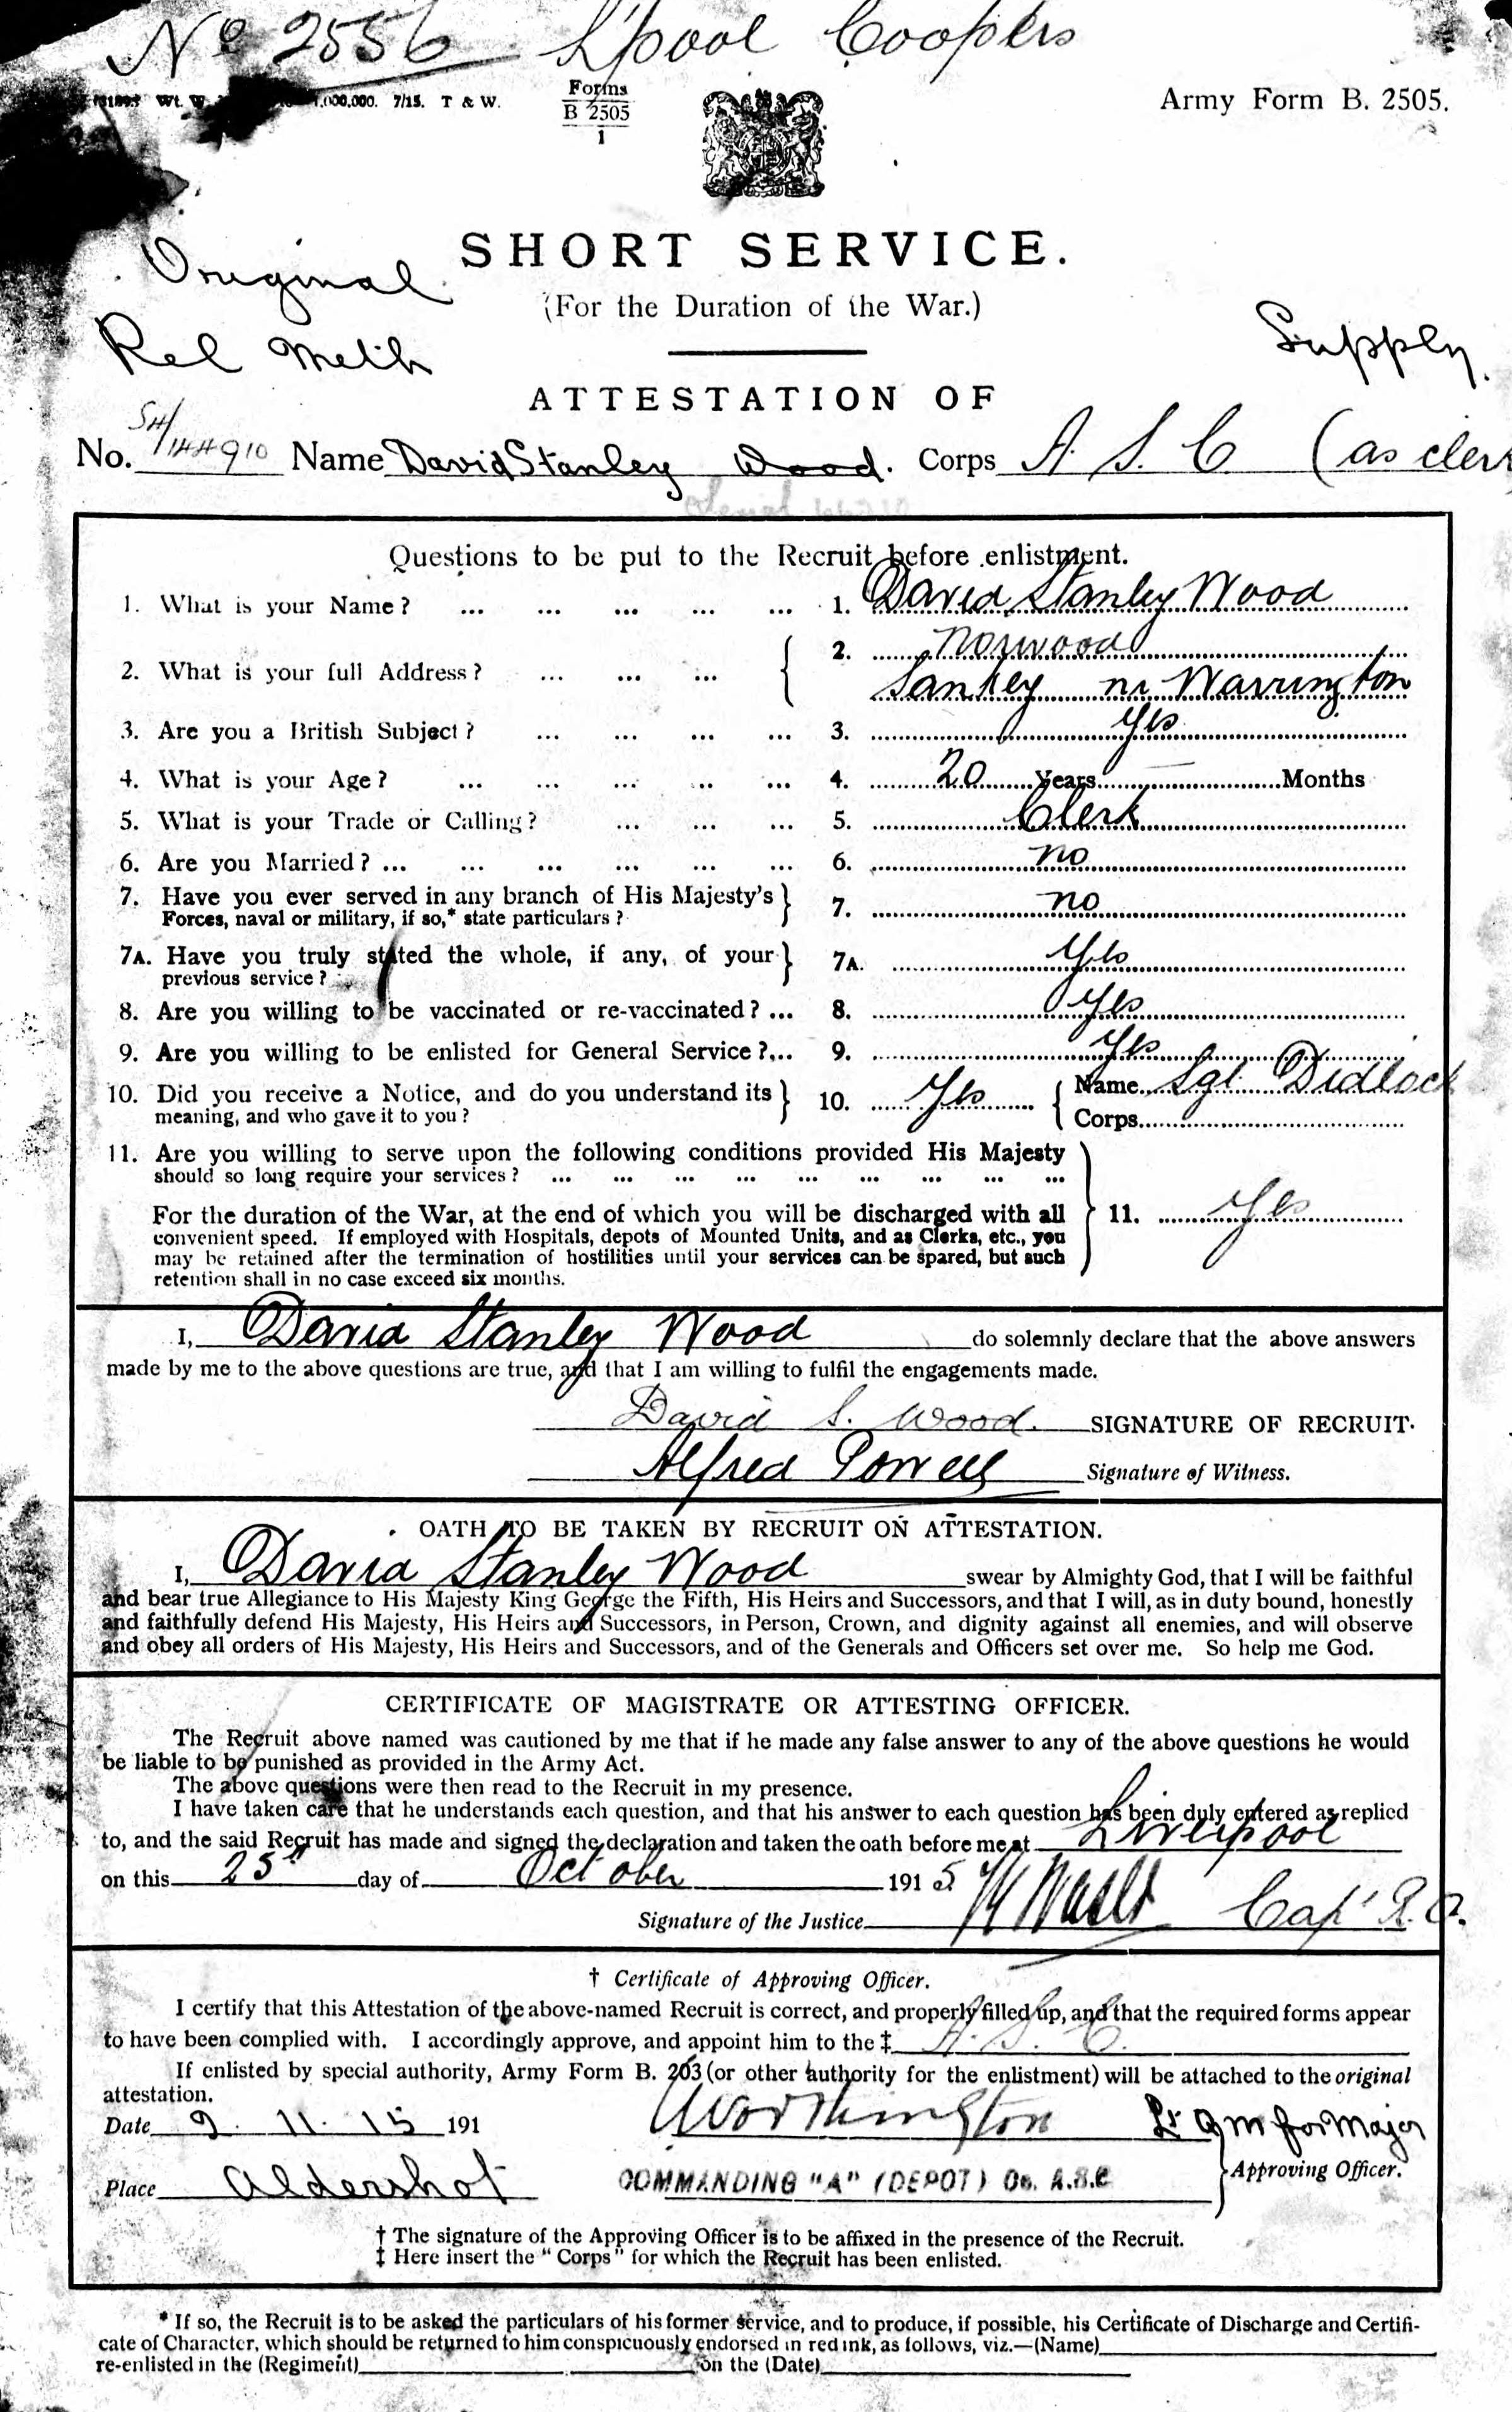 No 2556 L'pool Coopers
1,000,000. 7/15. T & W.
Forms
B 2505
1
Army Form B. 2505.
SHORT SERVICE.
Original
(For the Duration of the War.)
Rel Meth
Supply.
ATTESTATION OF
No. S4/144910 Name David Stanley Wood. Corps A. S. C. (as clerk
Questions to be put to the Recruit before enlistment.
1. What is your Name? ... ... ... ... ... 1. David Stanley Wood
2. What is your full Address? ... ... ... 2. Norwood
Sankey nr Warrington
3. Are you a British Subject? ... ... ... ... 3. Yes
4. What is your Age? ... ... ... ... ... 4. 20 Years — Months
5. What is your Trade or Calling? ... ... ... 5. Clerk
6. Are you Married? ... ... ... ... ... ... 6. no
7. Have you ever served in any branch of His Majesty's } 7. no
Forces, naval or military, if so,* state particulars?
7A. Have you truly stated the whole, if any, of your } 7A. Yes
previous service?
8. Are you willing to be vaccinated or re-vaccinated? ... 8. Yes
9. Are you willing to be enlisted for General Service?... 9. Yes
10. Did you receive a Notice, and do you understand its } 10. Yes { Name Sgt Didlock
meaning, and who gave it to you? Corps
11. Are you willing to serve upon the following conditions provided His Majesty
should so long require your services? ... ... ... ... ... ... ... ... ...
For the duration of the War, at the end of which you will be discharged with all } 11. Yes
convenient speed. If employed with Hospitals, depots of Mounted Units, and as Clerks, etc., you
may be retained after the termination of hostilities until your services can be spared, but such
retention shall in no case exceed six months.
I, David Stanley Wood do solemnly declare that the above answers
made by me to the above questions are true, and that I am willing to fulfil the engagements made.
David S. Wood. SIGNATURE OF RECRUIT.
Alfred Powell Signature of Witness.
OATH TO BE TAKEN BY RECRUIT ON ATTESTATION.
I, David Stanley Wood swear by Almighty God, that I will be faithful
and bear true Allegiance to His Majesty King George the Fifth, His Heirs and Successors, and that I will, as in duty bound, honestly
and faithfully defend His Majesty, His Heirs and Successors, in Person, Crown, and dignity against all enemies, and will observe
and obey all orders of His Majesty, His Heirs and Successors, and of the Generals and Officers set over me. So help me God.
CERTIFICATE OF MAGISTRATE OR ATTESTING OFFICER.
The Recruit above named was cautioned by me that if he made any false answer to any of the above questions he would
be liable to be punished as provided in the Army Act.
The above questions were then read to the Recruit in my presence.
I have taken care that he understands each question, and that his answer to each question has been duly entered as replied
to, and the said Recruit has made and signed the declaration and taken the oath before me at Liverpool
on this 25th day of October 1915
Signature of the Justice Capt R.O.
† Certificate of Approving Officer.
I certify that this Attestation of the above-named Recruit is correct, and properly filled up, and that the required forms appear
to have been complied with. I accordingly approve, and appoint him to the ‡ A. S. C.
If enlisted by special authority, Army Form B. 203 (or other authority for the enlistment) will be attached to the original
attestation.
Date 9. 11. 15 191 Worthington Lt QM for Major
Place Aldershot COMMANDING "A" (DEPOT) Co. A.S.C Approving Officer.
† The signature of the Approving Officer is to be affixed in the presence of the Recruit.
‡ Here insert the "Corps" for which the Recruit has been enlisted.
* If so, the Recruit is to be asked the particulars of his former service, and to produce, if possible, his Certificate of Discharge and Certifi-
cate of Character, which should be returned to him conspicuously endorsed in red ink, as follows, viz.—(Name)
re-enlisted in the (Regiment) on the (Date)